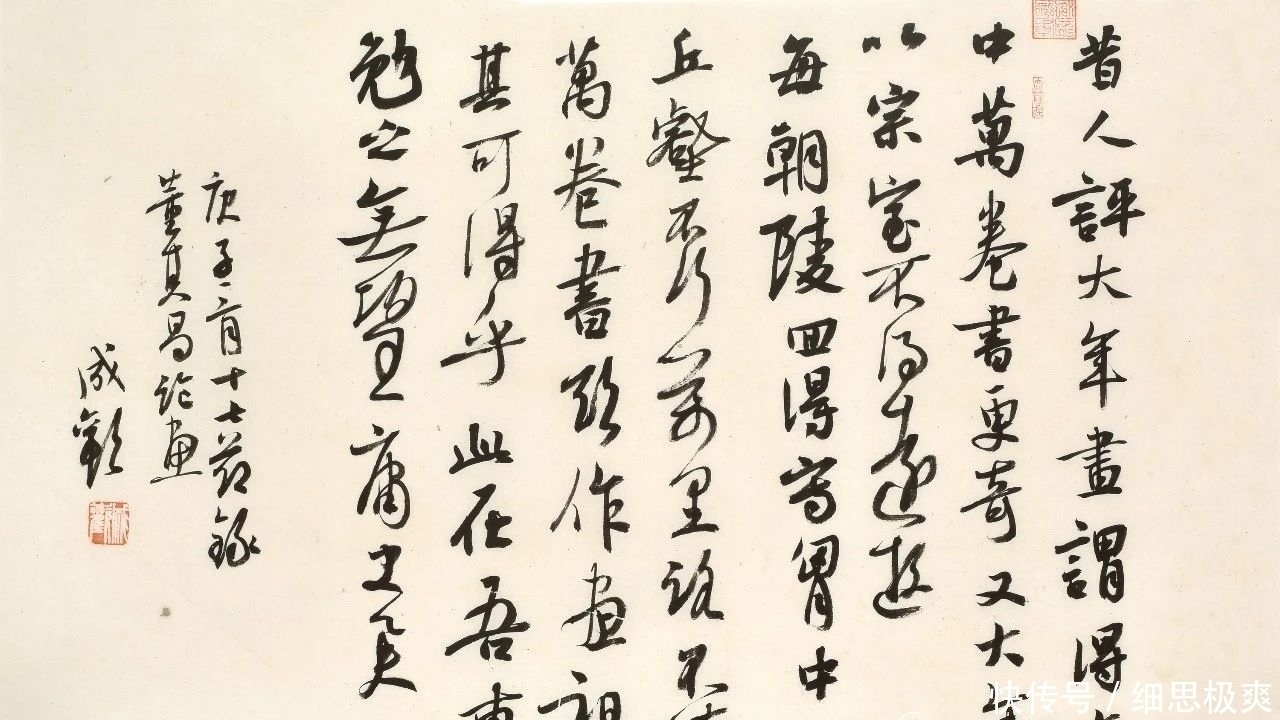 昔人評大年畫謂得
中萬卷書更奇又大
以宗室不得遠遊
每朝陵回得寫胷中
丘壑不行萬里路不
萬卷書欲作畫祖
其可得乎此在吾
勉之無望庸史矣
庚子二月十七節錄
董其昌論畫
成歡
快传号 / 细思极爽